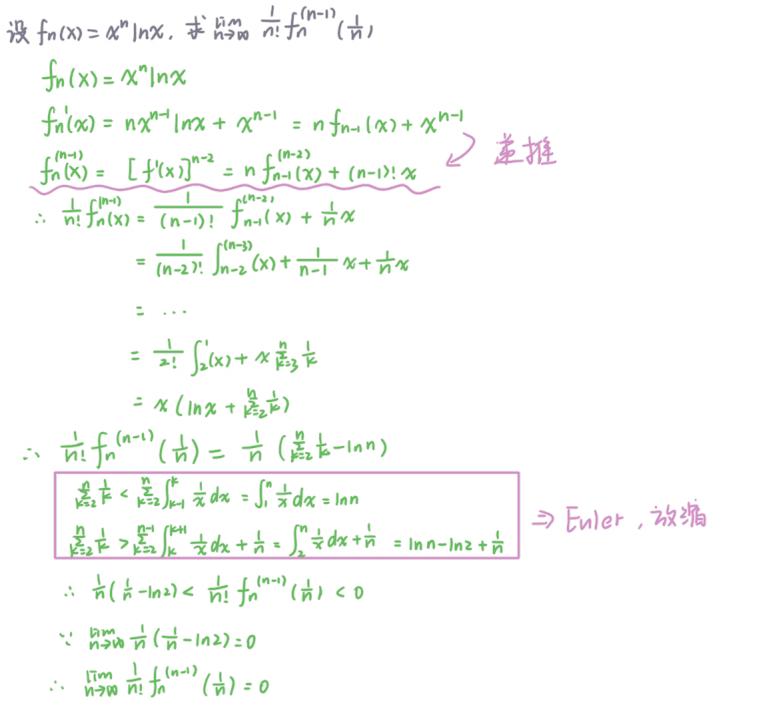 设 fₙ(x) = xⁿlnx. 求 lim_{n→∞} 1/n! fₙ⁽ⁿ⁻¹⁾(1/n)
fₙ(x) = xⁿlnx
fₙ'(x) = nxⁿ⁻¹lnx + xⁿ⁻¹ = n fₙ₋₁(x) + xⁿ⁻¹
fₙ⁽ⁿ⁻¹⁾(x) = [f'(x)]ⁿ⁻² = n fₙ₋₁⁽ⁿ⁻²⁾(x) + (n-1)! x
递推
∴ 1/n! fₙ⁽ⁿ⁻¹⁾(x) = 1/(n-1)! fₙ₋₁⁽ⁿ⁻²⁾(x) + 1/n x
= 1/(n-2)! fₙ₋₂⁽ⁿ⁻³⁾(x) + 1/(n-1) x + 1/n x
= ...
= 1/2! f₂'(x) + x Σ_{k=3}^{n} 1/k
= x (lnx + Σ_{k=2}^{n} 1/k)
∴ 1/n! fₙ⁽ⁿ⁻¹⁾(1/n) = 1/n (Σ_{k=2}^{n} 1/k - ln n)
Σ_{k=2}^{n} 1/k < Σ_{k=2}^{n} ∫_{k-1}^{k} 1/x dx = ∫_{1}^{n} 1/x dx = ln n
Σ_{k=2}^{n} 1/k > Σ_{k=2}^{n-1} ∫_{k}^{k+1} 1/x dx + 1/n = ∫_{2}^{n} 1/x dx + 1/n = ln n - ln2 + 1/n
⇒ Euler, 放缩
∴ 1/n (1/n - ln2) < 1/n! fₙ⁽ⁿ⁻¹⁾(1/n) < 0
∵ lim_{n→∞} 1/n (1/n - ln2) = 0
∴ lim_{n→∞} 1/n! fₙ⁽ⁿ⁻¹⁾(1/n) = 0